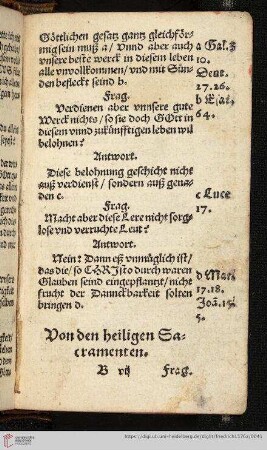 Göttlichen gesatz gantz gleichför-
mig sein muß a/ vnnd aber auch
vnsere beste werck in diesem leben
alle vnvollkommen/ vnd mit Sün-
den befleckt seind b.
a Gal. 3
10.
Deut.
27.26.
b Esai.
64.
Frag.
Verdienen aber vnnsere gute
Werck nichts/ so sie doch GOtt in
diesem vnnd zukünfftigen leben wil
belohnen?
Antwort.
Diese belohnung geschicht nicht
auß verdienst/ sondern auß gena-
den c.
c Luce
17.
Frag.
Macht aber diese Lere nicht sorg-
lose vnd verruchte Leut?
Antwort.
Nein: Dann eß vnmüglich ist/
das die/ so CHRIsto durch waren
Glauben seind eingepflantzt/ nicht
frucht der Danckbarkeit solten
bringen d.
d Mat.
7.18.
Joã. 15
5.
Von den heiligen Sa-
cramenten.
B vij Frag.